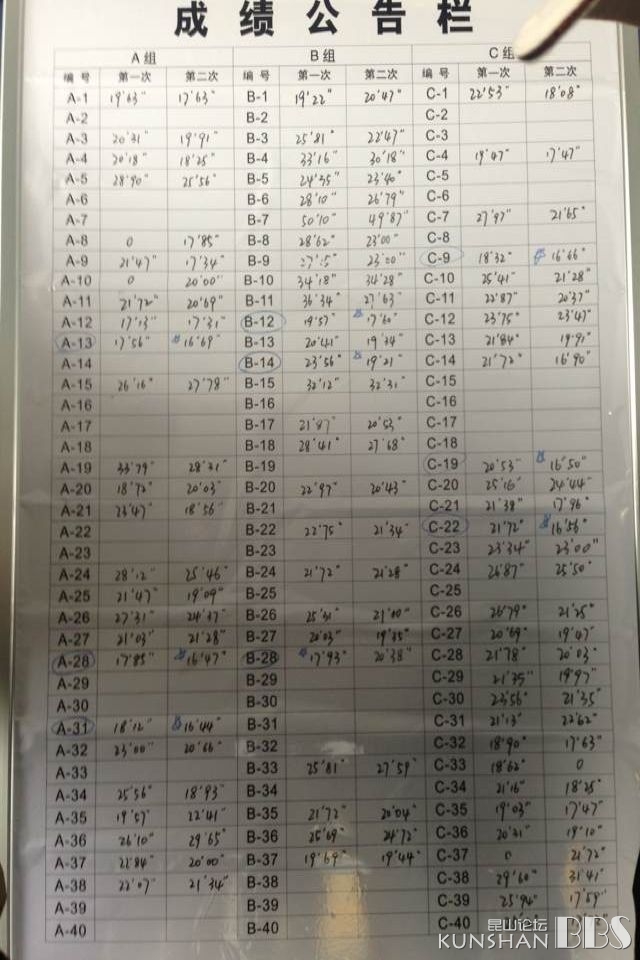 成绩公告栏
A组 B组 C组
编号 第一次 第二次 编号 第一次 第二次 编号 第一次 第二次
A-1 19'63" 17'63" B-1 19'22" 20'47" C-1 22'53" 18'08"
A-2 B-2 C-2
A-3 20'31" 19'91" B-3 25'81" 22'47" C-3
A-4 20'18" 18'25" B-4 33'16" 30'18" C-4 19'47" 17'47"
A-5 28'90" 25'56" B-5 23'40" C-5
A-6 B-6 28'10" 26'79" C-6
A-7 B-7 50'10" 49'87" C-7 27'97" 21'65"
A-8 0 17'85" B-8 28'62" 23'00" C-8
A-9 21'47" 17'34" B-9 23'00" C-9 18'32" 16'66"
A-10 0 20'00" B-10 34'18" 34'28" C-10 25'41" 21'28"
A-11 21'72" 20'69" B-11 36'34" 27'63" C-11 22'87" 20'37"
A-12 17'13" 17'31" B-12 19'57" 17'60" C-12 23'75" 23'47"
A-13 17'56" 16'69" B-13 20'41" 19'34" C-13 21'84" 19'91"
A-14 B-14 23'56" 19'21" C-14 21'72" 16'90"
A-15 26'16" 27'78" B-15 32'12" 32'31" C-15
A-16 B-16 C-16
A-17 B-17 21'87" 20'53" C-17
A-18 B-18 28'41" 27'68" C-18
A-19 33'79" 28'31" B-19 C-19 20'53" 16'50"
A-20 18'72" 20'03" B-20 22'97" 20'43" C-20 25'16" 24'44"
A-21 23'47" 18'56" B-21 C-21 21'38" 17'96"
A-22 B-22 22'75" 21'34" C-22 21'72" 16'56"
A-23 B-23 C-23 23'34" 23'00"
A-24 28'12" 25'46" B-24 21'72" 21'28" C-24 26'87" 25'50"
A-25 21'47" 19'09" B-25 C-25
A-26 27'31" 24'37" B-26 25'31" 21'00" C-26 26'79" 21'25"
A-27 21'03" 21'28" B-27 20'03" 19'35" C-27 20'69" 19'47"
A-28 17'85" 16'47" B-28 17'93" 20'38" C-28 21'78" 20'03"
A-29 B-29 C-29 21'75" 19'97"
A-30 B-30 C-30 23'56" 21'35"
A-31 18'12" 16'44" B-31 C-31 21'13" 22'62"
A-32 23'00" 20'66" B-32 C-32 18'90" 17'63"
A-33 B-33 25'81" 27'59" C-33 18'62" 0
A-34 25'56" 18'93" B-34 C-34 21'16" 18'25"
A-35 19'57" 22'41" B-35 21'72" 20'04" C-35 19'03" 17'47"
A-36 26'10" 29'65" B-36 25'69" 24'72" C-36 20'31" 19'10"
A-37 21'84" 20'00" B-37 19'69" 19'44" C-37 0 21'72"
A-38 22'07" 21'34" B-38 C-38 29'60" 31'41"
A-39 B-39 C-39 25'94" 17'59"
A-40 B-40 C-40
昆山论坛
KUNSHAN BBS